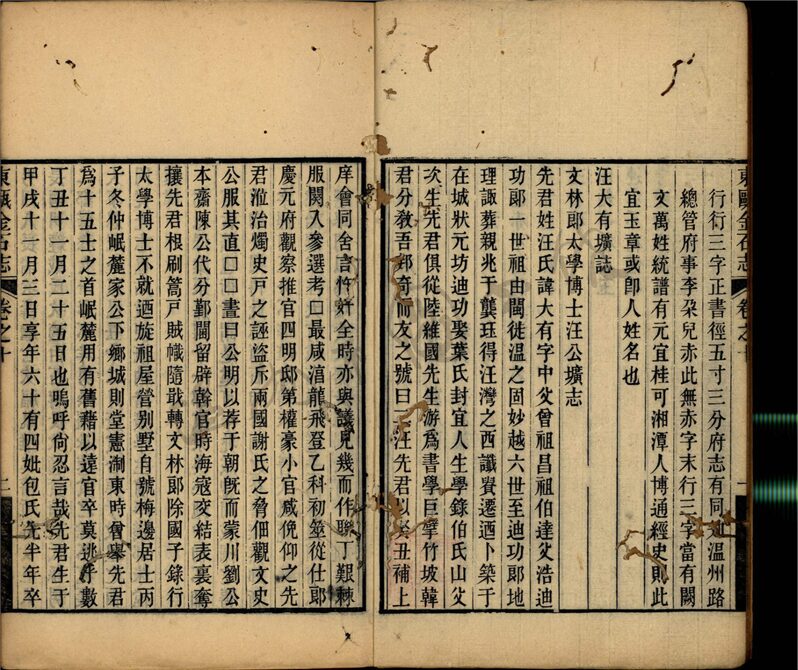 東甌金石志
卷之十
一
行行三字正書徑五寸三分府志有同知温州路
總管府事李朶兒赤此無赤字末行三字當有闕
文萬姓統譜有元宜桂可湘潭人博通經史則此
宜玉章或卽人姓名也
汪大有壙誌
文林郎太學博士汪公壙志
先君姓汪氏諱大有字中父曾祖昌祖伯達父浩迪
功郎一世祖由閩徙温之固妙越六世至迪功郎地
理諏葬親兆于龔珏得汪灣之西讖賚遷迺卜築于
在城狀元坊迪功娶葉氏封宜人生學錄伯氏山父
次生先君俱從陸維國先生游爲書學巨擘竹坡韓
君分敎吾郡奇而友之號曰二汪先君以癸丑補上
庠會同舍言忤奸全時亦與議見幾而作聯丁艱棘
服関入参選考□最咸淳龍飛登乙科初筮從仕郎
慶元府觀察推官四明邸第權豪小官咸俛仰之先
君涖治燭史戸之誣盜斥兩國謝氏之脅佃觀文史
公服其直□□晝曰公明以荐于朝旣而蒙川劉公
本齋陳公代分鄞閫留辟幹官時海寇交結表裏奪
攘先君根刷篙戸賊幟隨戢轉文林郎除國子錄行
太學博士不就迺旋祖屋營别墅自號梅邊居士丙
子冬仲岷麓家公下鄉城則堂憲淛東時曾辜先君
爲十五士之首岷麓用有舊藉以遠官卒莫逃乎數
丁丑十一月二十五日也嗚呼尙忍言哉先君生于
甲戌十一月三日享年六十有四妣包氏先半年卒
東甌金石志
卷之十
二